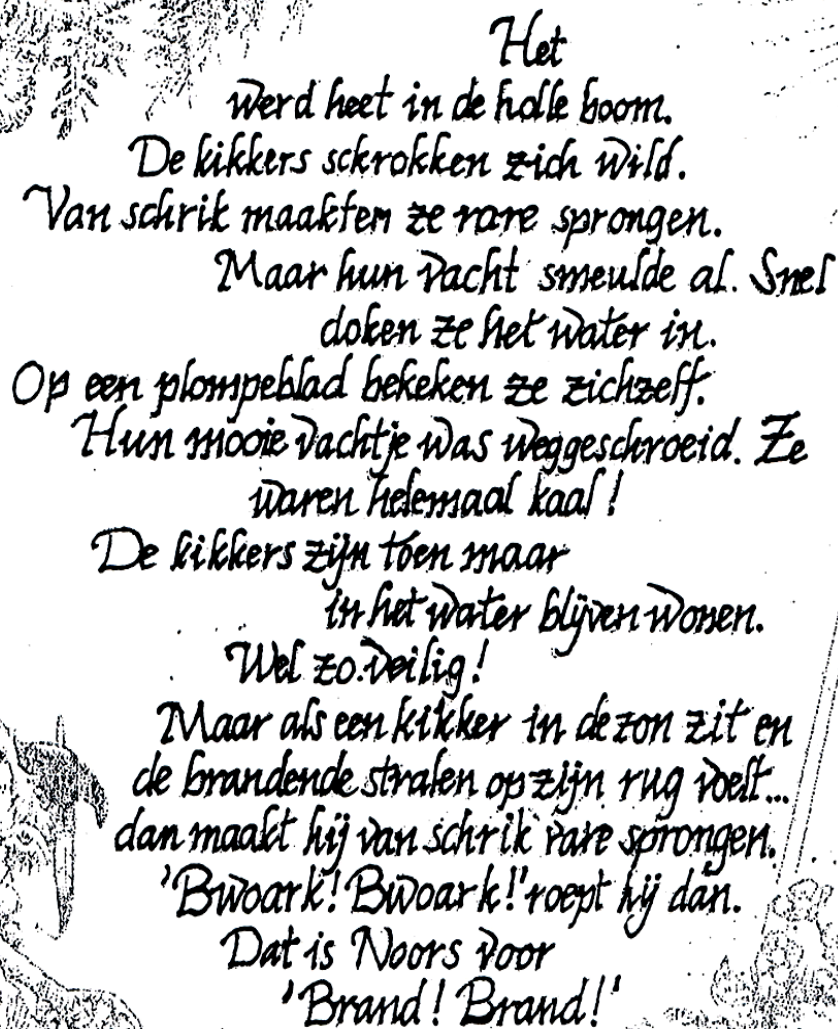 Het
werd heet in de holle boom.
De kikkers sckrokken zich wild.
Van schrik maakten ze rare sprongen.
Maar hun vacht smeulde al. Snel
doken ze het water in.
Op een plompeblad bekeken ze zichzelf.
Hun mooie vachtje was weggeschroeid. Ze
waren helemaal kaal!
De kikkers zijn toen maar
in het water blijven wonen.
Wel zo veilig!
Maar als een kikker in de zon zit en
de brandende stralen op zijn rug voelt...
dan maakt hij van schrik rare sprongen.
'Bwoark! Bwoark!' roept hij dan.
Dat is Noors voor
'Brand! Brand!'